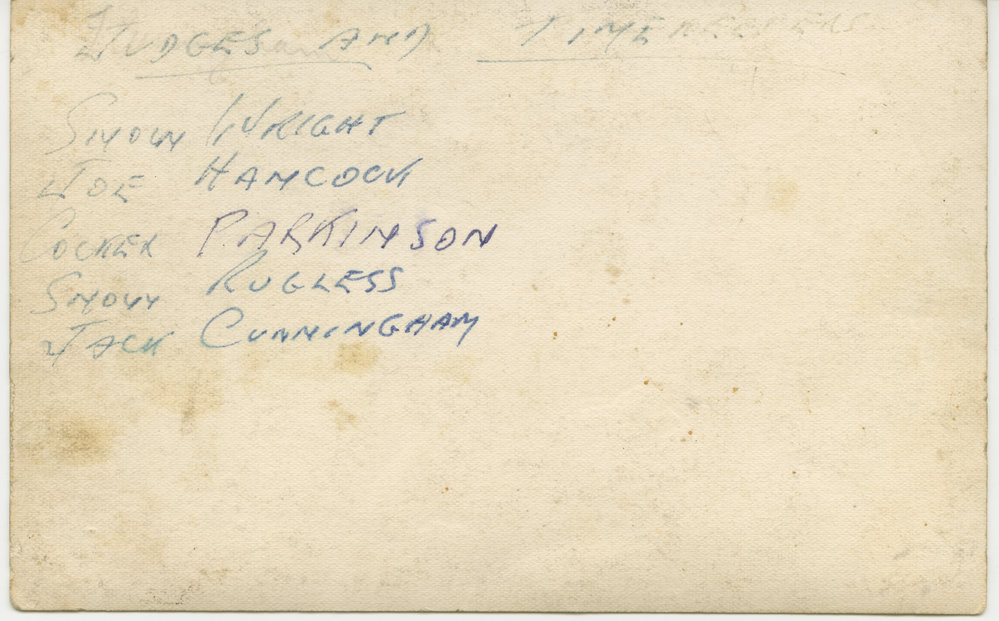 JUDGES AND TIMEKEEPERS
SNOWY WRIGHT
JOE HANCOCK
COCKER PARKINSON
SNOWY RUGLESS
JACK CUNNINGHAM